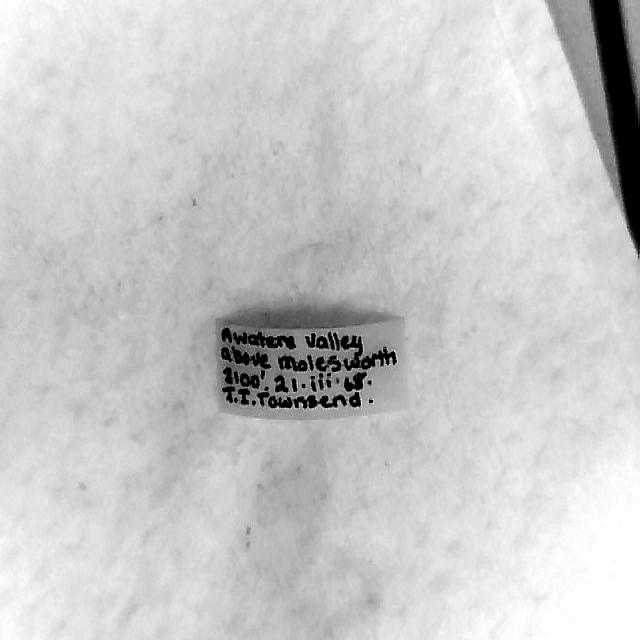 Awatere Valley
above Molesworth
21.iii.65.
J.I. Townsend.